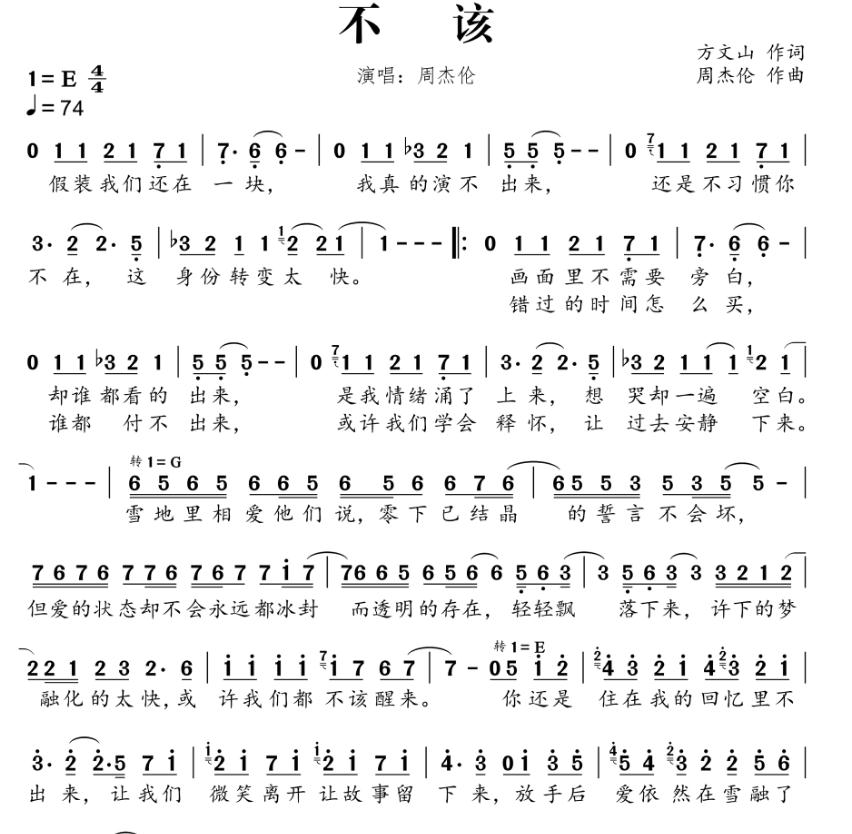 不 该
方文山 作词
1=E 4/4 演唱：周杰伦 周杰伦 作曲
♩=74
0 1 1 2 1 7 1 | 7· 6 6 - | 0 1 1 ♭3 2 1 | 5 5 5 - - | 0 7 1 1 2 1 7 1 |
假装我们还在 一块， 我真的演不 出来， 还是不习惯你
3· 2 2· 5 | ♭3 2 1 1 1 2 2 1 | 1 - - - ‖: 0 1 1 2 1 7 1 | 7· 6 6 - |
不在，这 身份转变太 快。 画面里不需要 旁白，
错过的时间怎 么买，
0 1 1 ♭3 2 1 | 5 5 5 - - | 0 7 1 1 2 1 7 1 | 3· 2 2· 5 | ♭3 2 1 1 1 1 2 1 |
却谁都看的 出来， 是我情绪涌了 上来，想 哭却一遍 空白。
谁都 付不 出来， 或许我们学会 释怀，让 过去安静 下来。
转 1=G
1 - - - | 6 5 6 5 6 6 5 6 5 6 6 7 6 | 6 5 5 3 5 3 5 5 - |
雪地里相爱他们说，零下已结晶 的誓言不会坏，
7 6 7 6 7 7 6 7 6 7 7 1 7 | 7 6 6 5 6 5 6 6 5 6 3 | 3 5 6 3 3 3 2 1 2
但爱的状态却不会永远都冰封 而透明的存在，轻轻飘 落下来，许下的梦
转 1=E
2 2 1 2 3 2· 6 | 1 1 1 1 7 1 7 6 7 | 7 - 0 5 1 2 | 2 4 3 2 1 4 2 3 2 1 |
融化的太快，或 许我们都 不该醒来。 你还是 住在我的回忆里不
3· 2 2· 5 7 1 | 1 2 1 7 1 1 2 1 7 1 | 4· 3 0 1 3 5 | 4 5 4 2 3 2 2 5 6 |
出来，让我们 微笑离开让故事留 下来，放手后 爱依然在雪融了